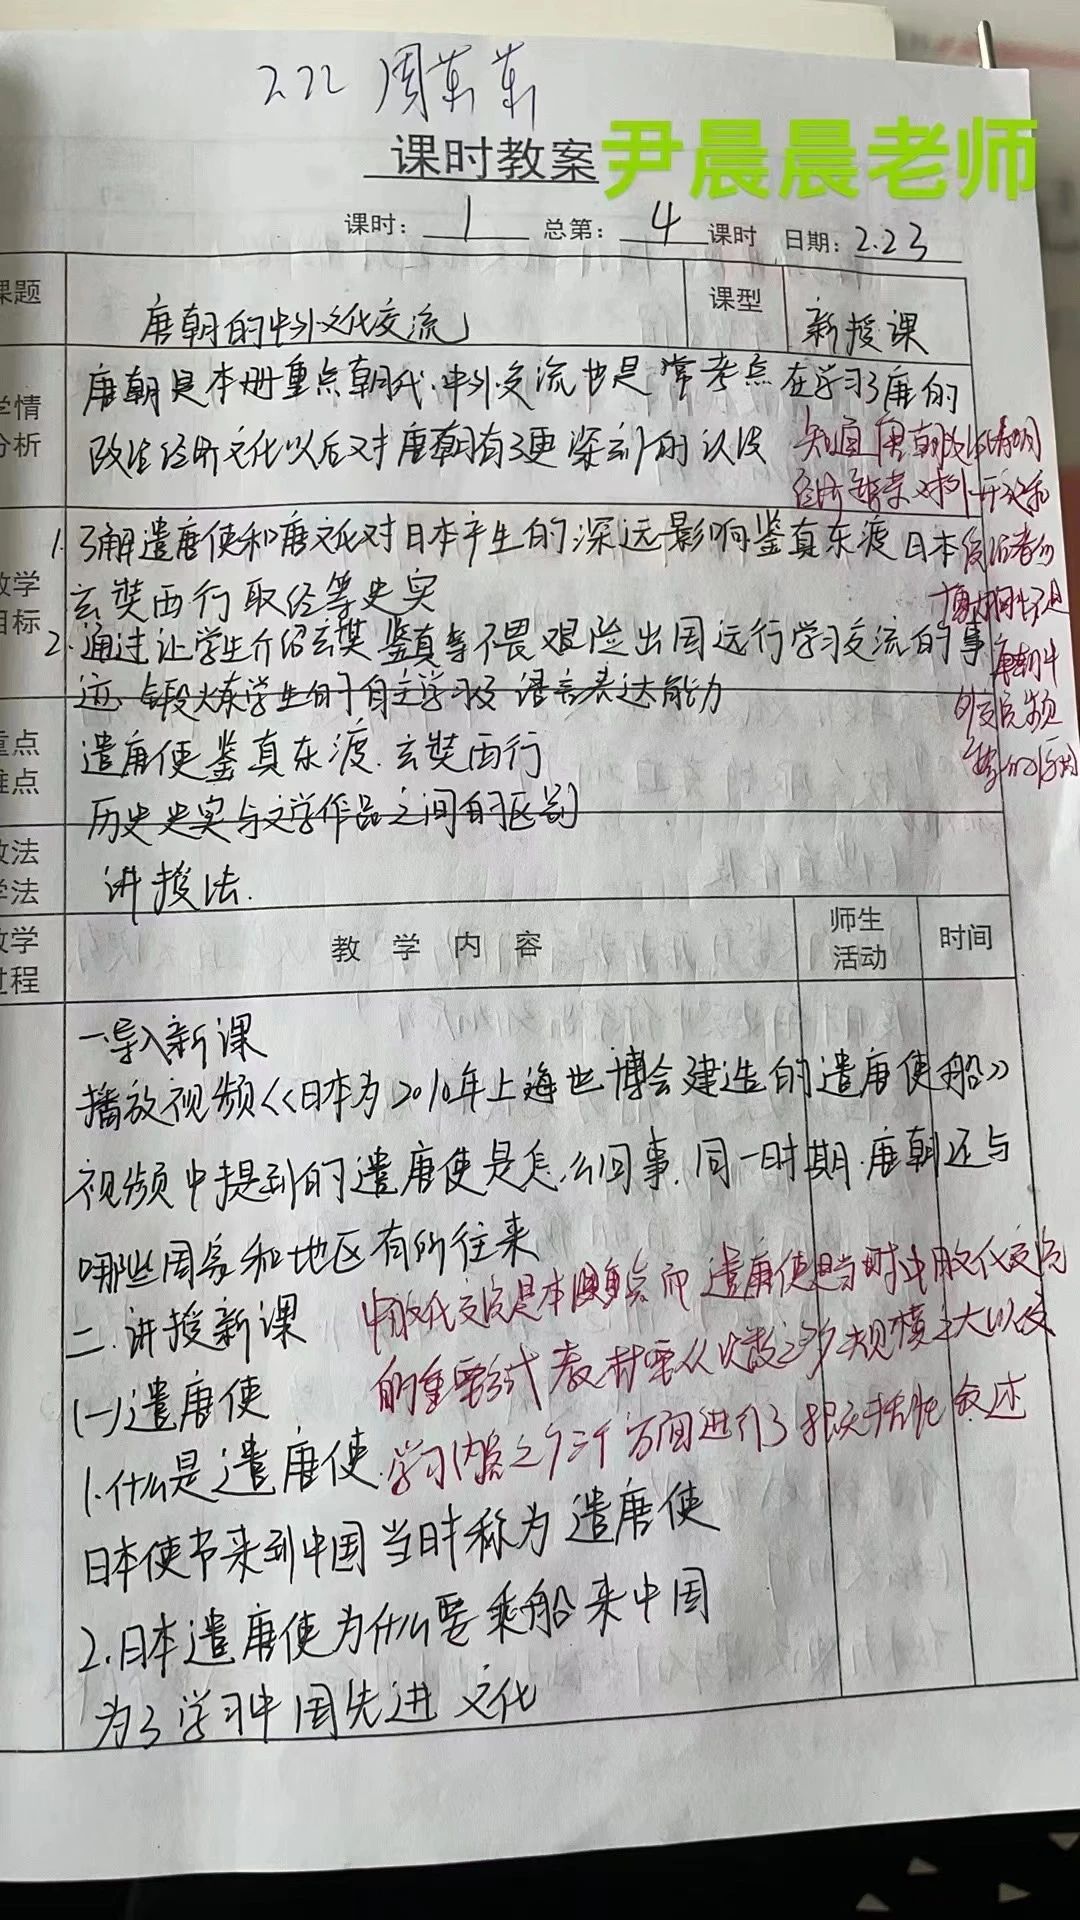 2.22 周莱莱
课时教案
尹晨晨老师
课时: 1 总第: 4 课时 日期: 2.23
课题 唐朝的中外文化交流 课型 新授课
学情分析
唐朝是本册重点朝代.中外交流也是常考点 在学习了唐的
政治经济文化以后对唐朝有了更深刻的认识
知道唐朝政治清明
经济繁荣 对外开放和
统治者的
唐朝中
外交流频
繁的原因
教学目标
1.了解遣唐使和唐文化对日本产生的深远影响鉴真东渡日本
玄奘西行取经等史实
2.通过让学生介绍玄奘 鉴真等不畏艰险出国远行学习交流的事
迹、锻炼学生的自主学习及语言表达能力
重点难点
遣唐使 鉴真东渡.玄奘西行
历史史实与文学作品之间的区别
教法学法
讲授法.
教学过程 教学内容 师生活动 时间
一.导入新课
播放视频《日本为2010年上海世博会建造的遣唐使船》
视频中提到的遣唐使是怎么回事.同一时期.唐朝还与
哪些国家和地区有所往来
二.讲授新课
中外文化交流是本课重点 而遣唐使是当时中日文化交流
的重要 教材要从次数之多 规模之大以及
(一)遣唐使
学习内容之 三个方面进行了 叙述
1.什么是遣唐使.
日本使节来到中国当时称为遣唐使
2.日本遣唐使为什么要乘船来中国
为了学习中国先进文化